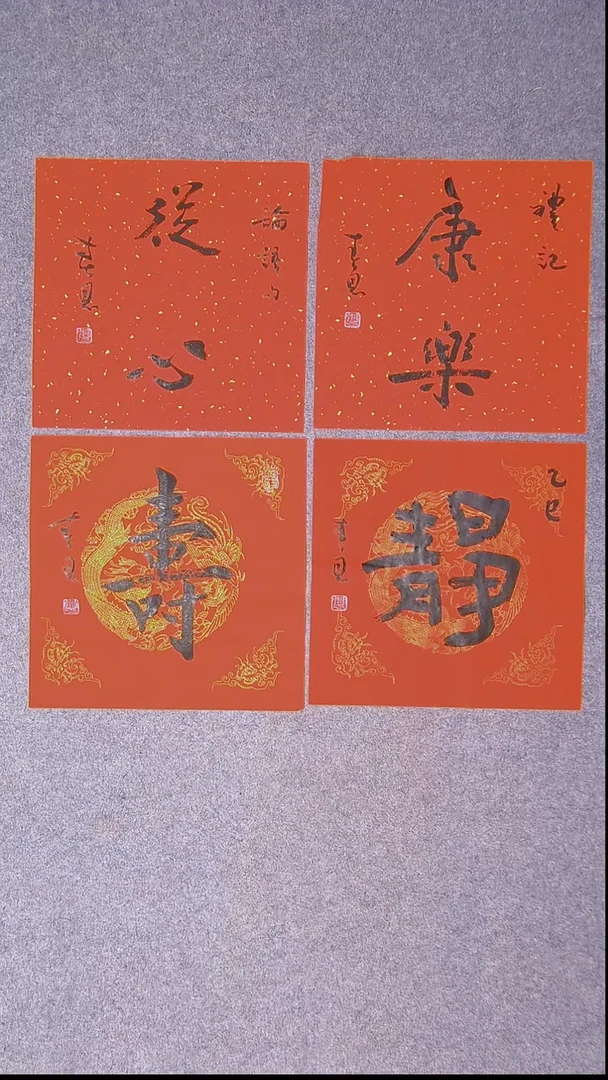 論語句
從心
禮記
康樂
壽
乙巳
靜